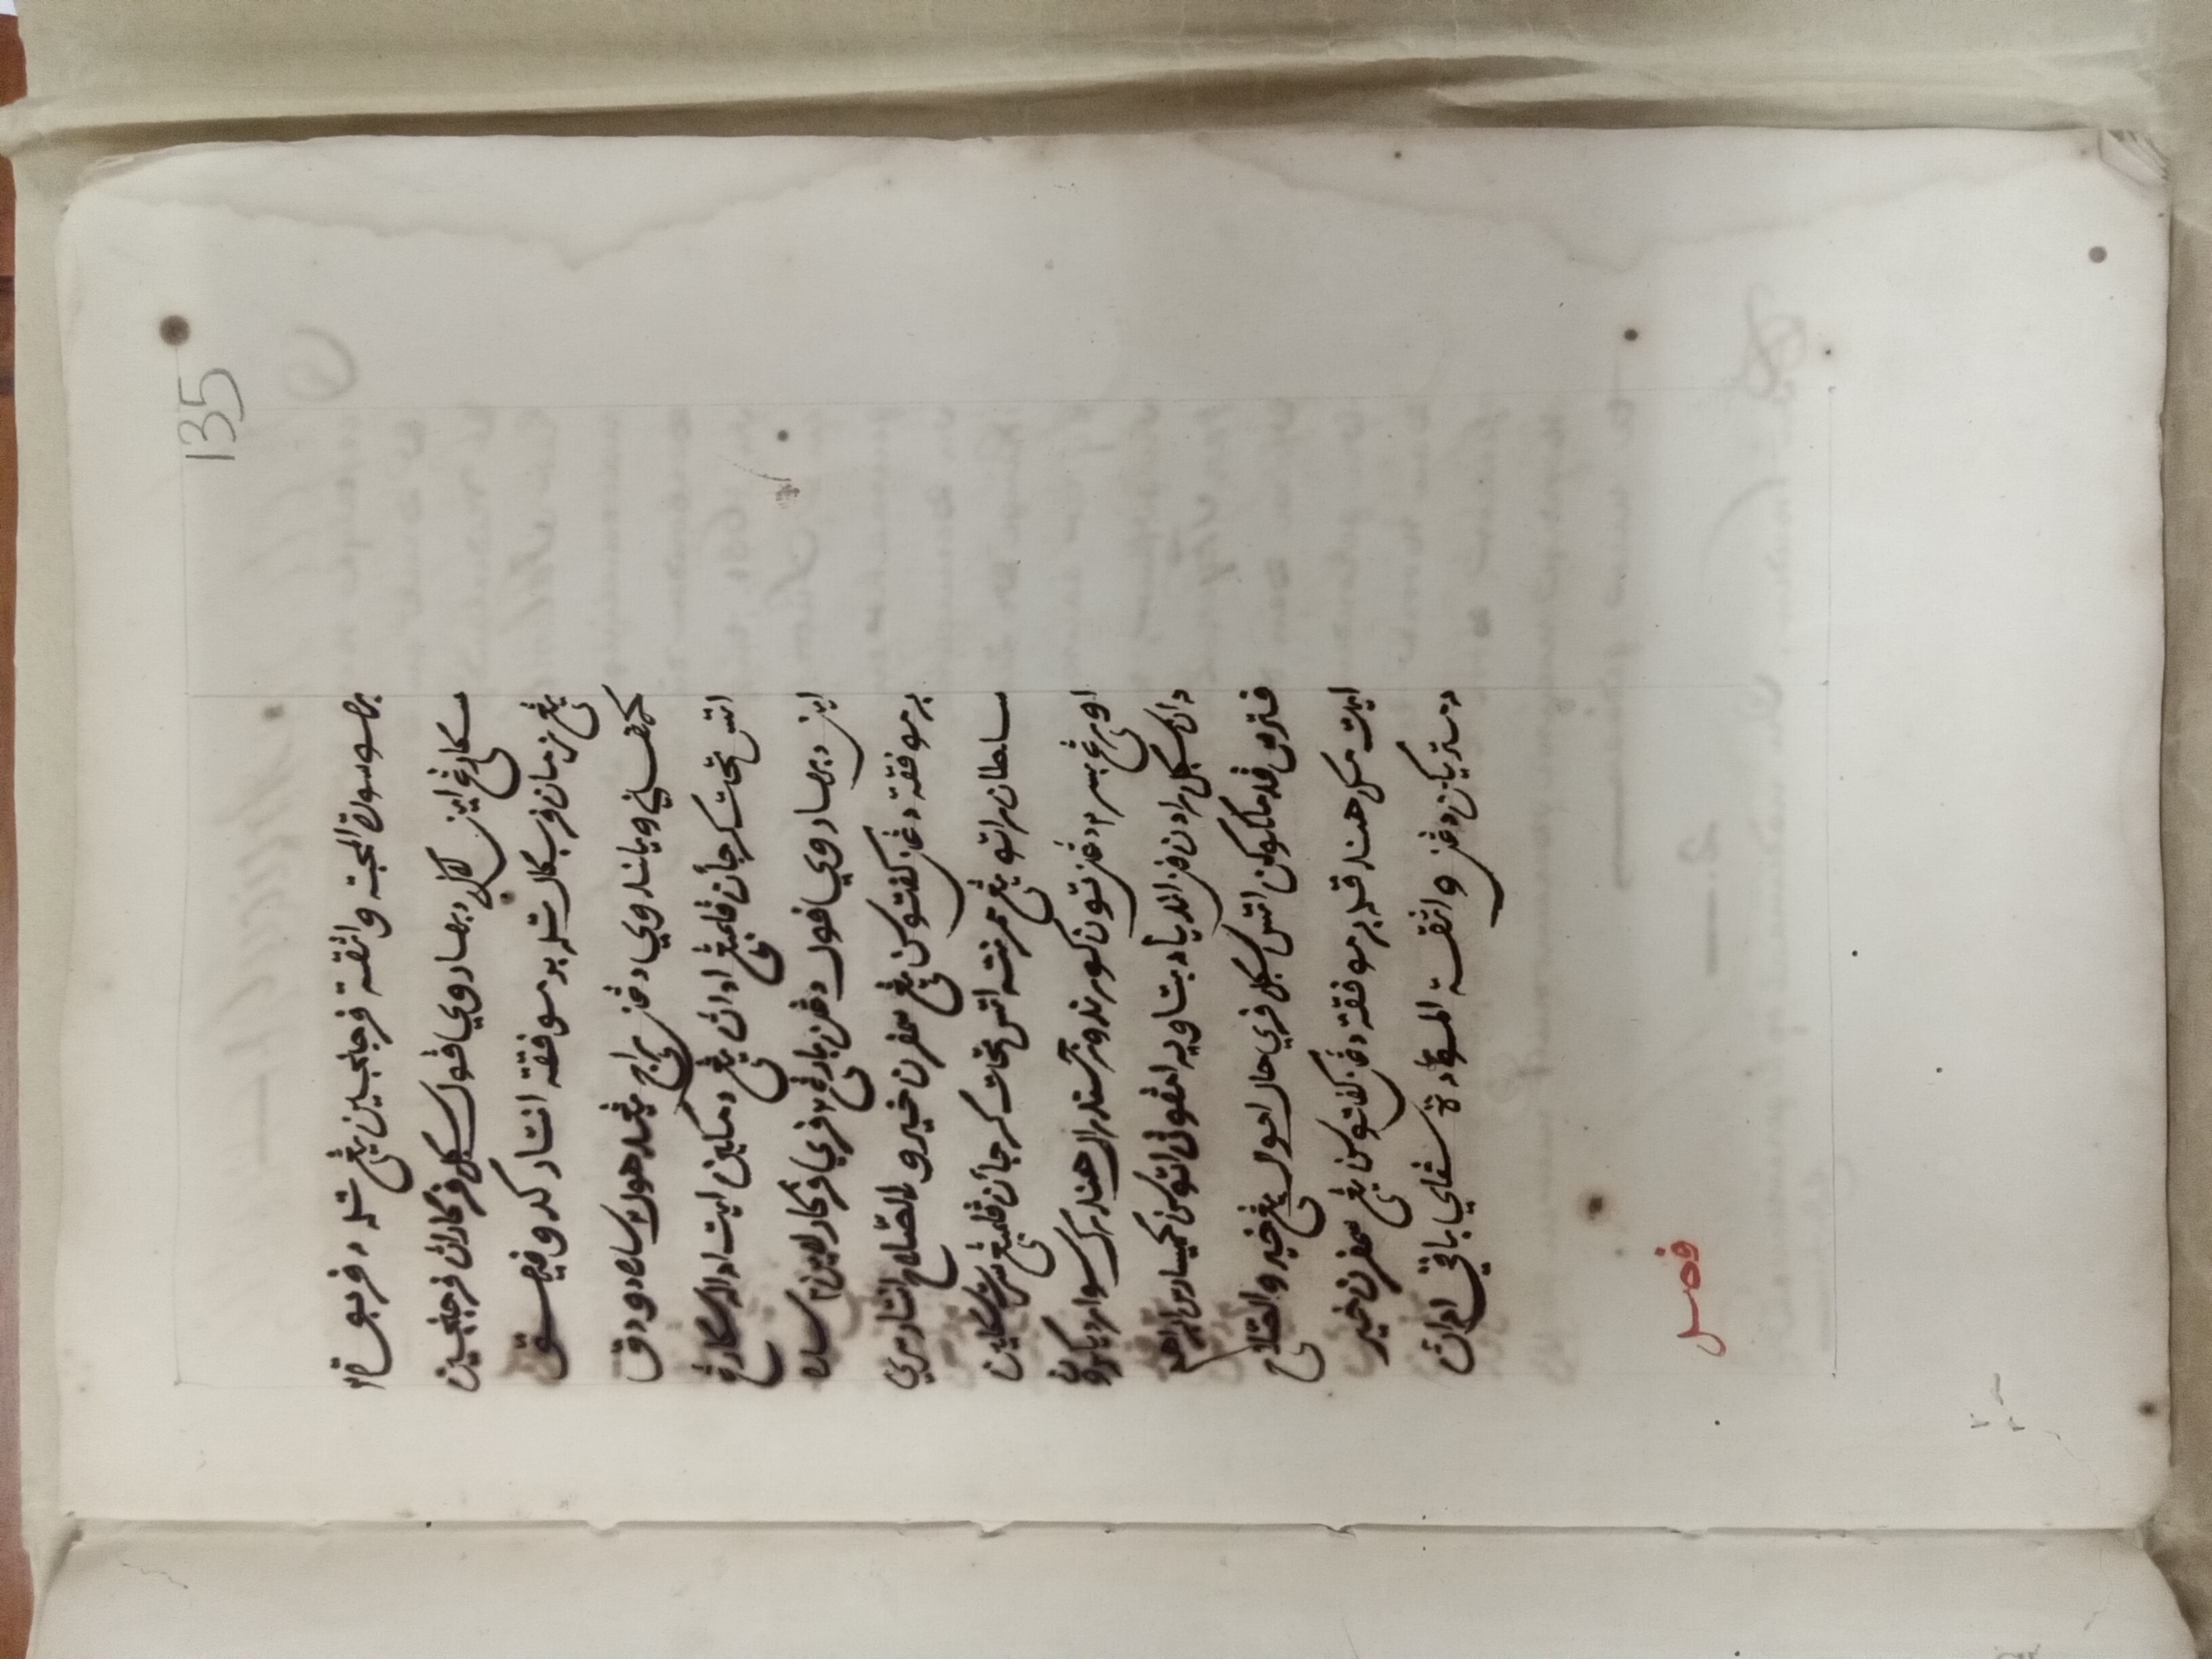 135
برسودارة المحبة واثقة فرجنجين يڠ تله دفربوة٢
سكارڠ اين لاݢي دبهاروي ڤول سݢل فركاران فرجنجين
يڠ زمان فربكال تله برموفقة انتار كدو فيهق
كمفني وياندوي دڠن راج يڠ دهولو٢ ساره دودق
اتس تخت كرجأن ڤلمبڠ ادان يڠ دمكين ايت اداله سكارڠ
اين دبهاروي ڤول دڠن بارڠ٢ فري فركار لاين٢ ساره
برموفقة دڠن كفتوسن يڠ سمفرن خير والصلاح انتار سري
سلطان راتو يڠ ممرنته اتس تخت كرجأن ڤلمبڠ سرت سكلين
اورڠ بسر٢ دڠن تون كورندور جندرال هندرك سواردكرون
دان سݢل رادن فن انديا دبتاويه امڤوڽ اتوسن كميسارس ابراهم
فترس ڤد ملاكوكن اتس سݢل فري حال احوال يڠ خير والصلاح
ايت مك هندقله برموفقة دڠن كفتوسن يڠ سمفرن خير
دستريكن دڠن واثقة المؤدة سڤاي باقي ادان
فصل